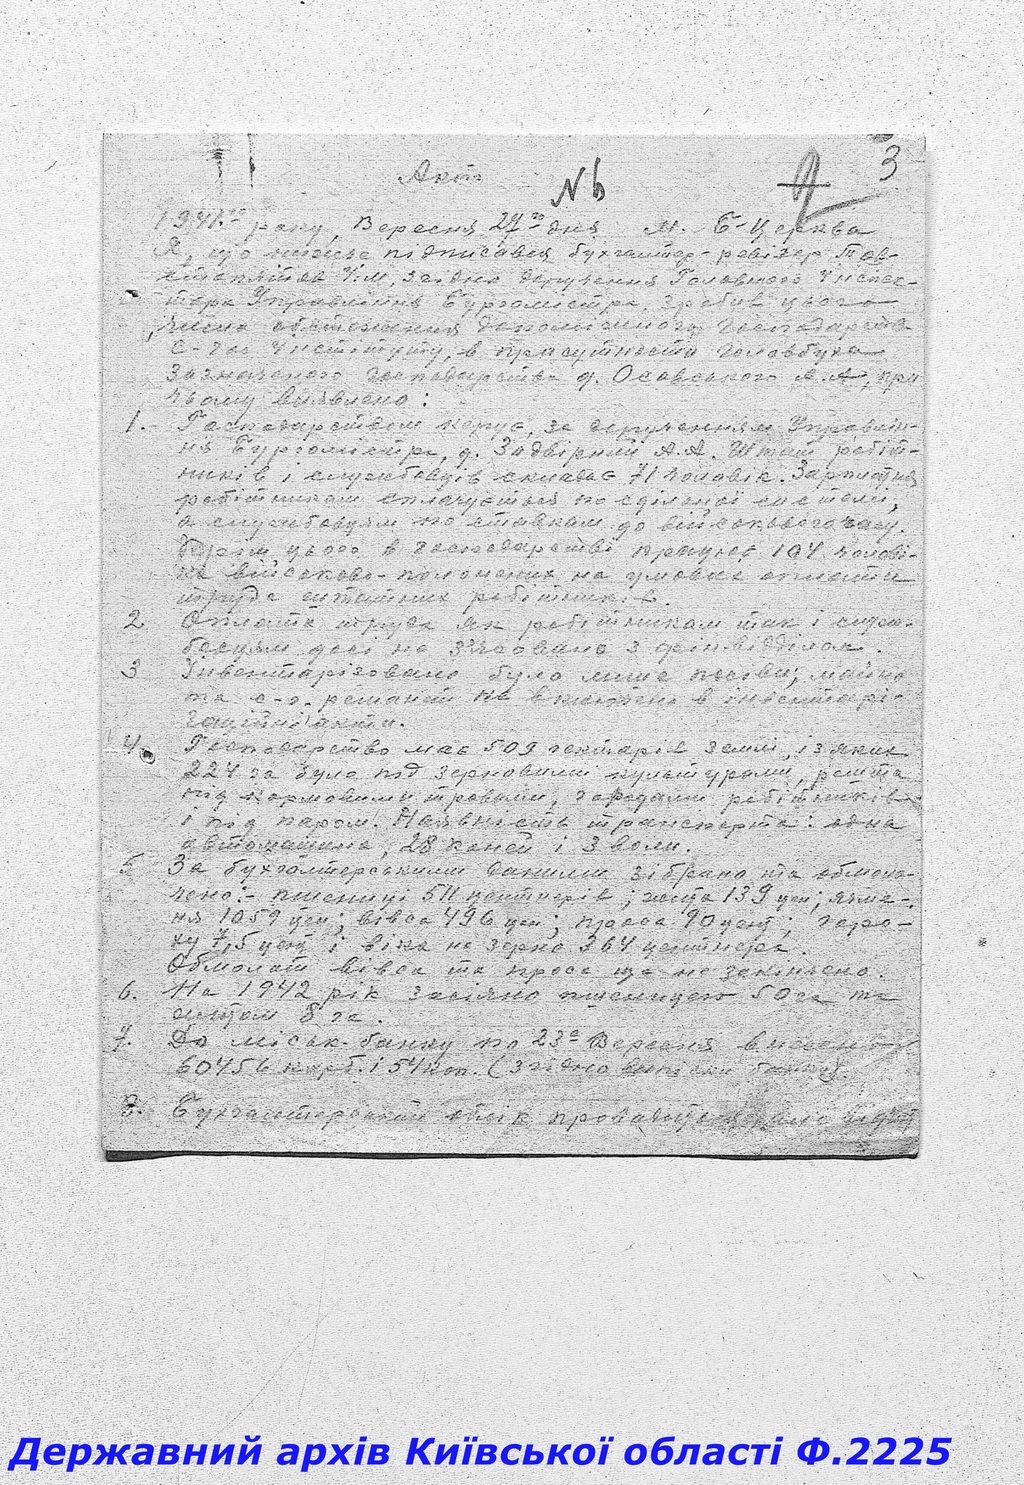 Акт
N 6
3
1941го року, Вересня 27го дня м. Б-Церква
Я, що нижче підписався бухгалтер-ревізер
згідно доручення Головного Инспек-
тора Управління Бургомістра, зробив цього
числа обстеження допоміжного господарства
С-гос Институту, в присутности головбуха
зазначеного господарства д. Осовського А.А, при
чьому виявлено:
1. Господарством керує, за дорученням Управлін-
ня Бургомістра, д. Задвірний А.А. Штат робіт-
ників і службовців складає 71 чоловік. Зарплатня
робітникам сплачується по сдільної системі,
а службовцям по ставкам до військового часу.
Кроім цього в господарстві працює 104 чолові-
ка військово-полонених на умовах оплати
труда штатних робітників.
2 Оплата труда як робітникам так і служ-
бовцям досі не з'ясовано з фінвідділом.
3 Інвентарізовано було лише посіви; майно
та с-г. реманент не включено в інвентарі-
заційні акти.
4. Господарство має 509 гектарів землі, із яких
224 га було під зерновими культурами, решта
під кормовими травами, городами робітників
і під паром. Наявність транспорта: одна
автомашина, 28 коней і 3 воли.
5 За бухгалтерськими даними зібрано та обмоло-
чено:- пшениці 511 центнерів; жита 139 цен; ячме-
ня 1059 цен; вівса 496 цен; проса 90 цент; горо-
ху 7,5 цент і віка на зерно 364 центнера.
Обмолот вівса та проса ще не закінчено.
6. На 1942 рік засіяно пшеницею 50 га та
житом 8 га.
7. До міськ-банку по 23е Вересня внесено
60456 карб. і 54 коп. (Згідно виписки банку).
8. Бухгалтерський облік провадиться
Державний архів Київської області Ф.2225